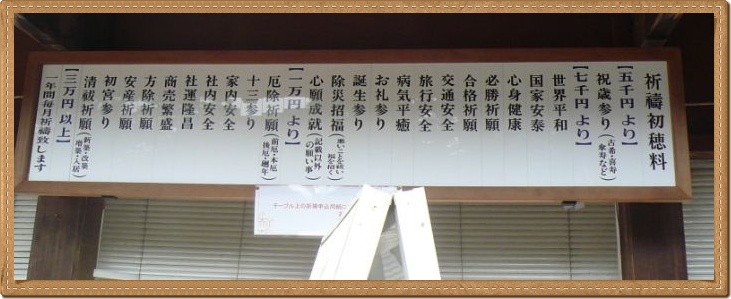 祈禱初穂料
【五千円より】
祝歳参り(古希・喜寿傘寿など)
【七千円より】
世界平和
国家安泰
心身健康
必勝祈願
合格祈願
交通安全
旅行安全
病気平癒
お礼参り
誕生参り
除災招福(悪いことを祓い福を招く)
心願成就(記載以外の願い事)
【一万円より】
厄除祈願(前厄・本厄後厄・桝年)
十三参り
家内安全
社内安全
社運隆昌
商売繁盛
方除祈願
安産祈願
初宮参り
清祓祈願(新築・改築増築・入居)
【三万円以上】
一年間毎月祈禱致します
テーブル上の祈禱申込用紙に